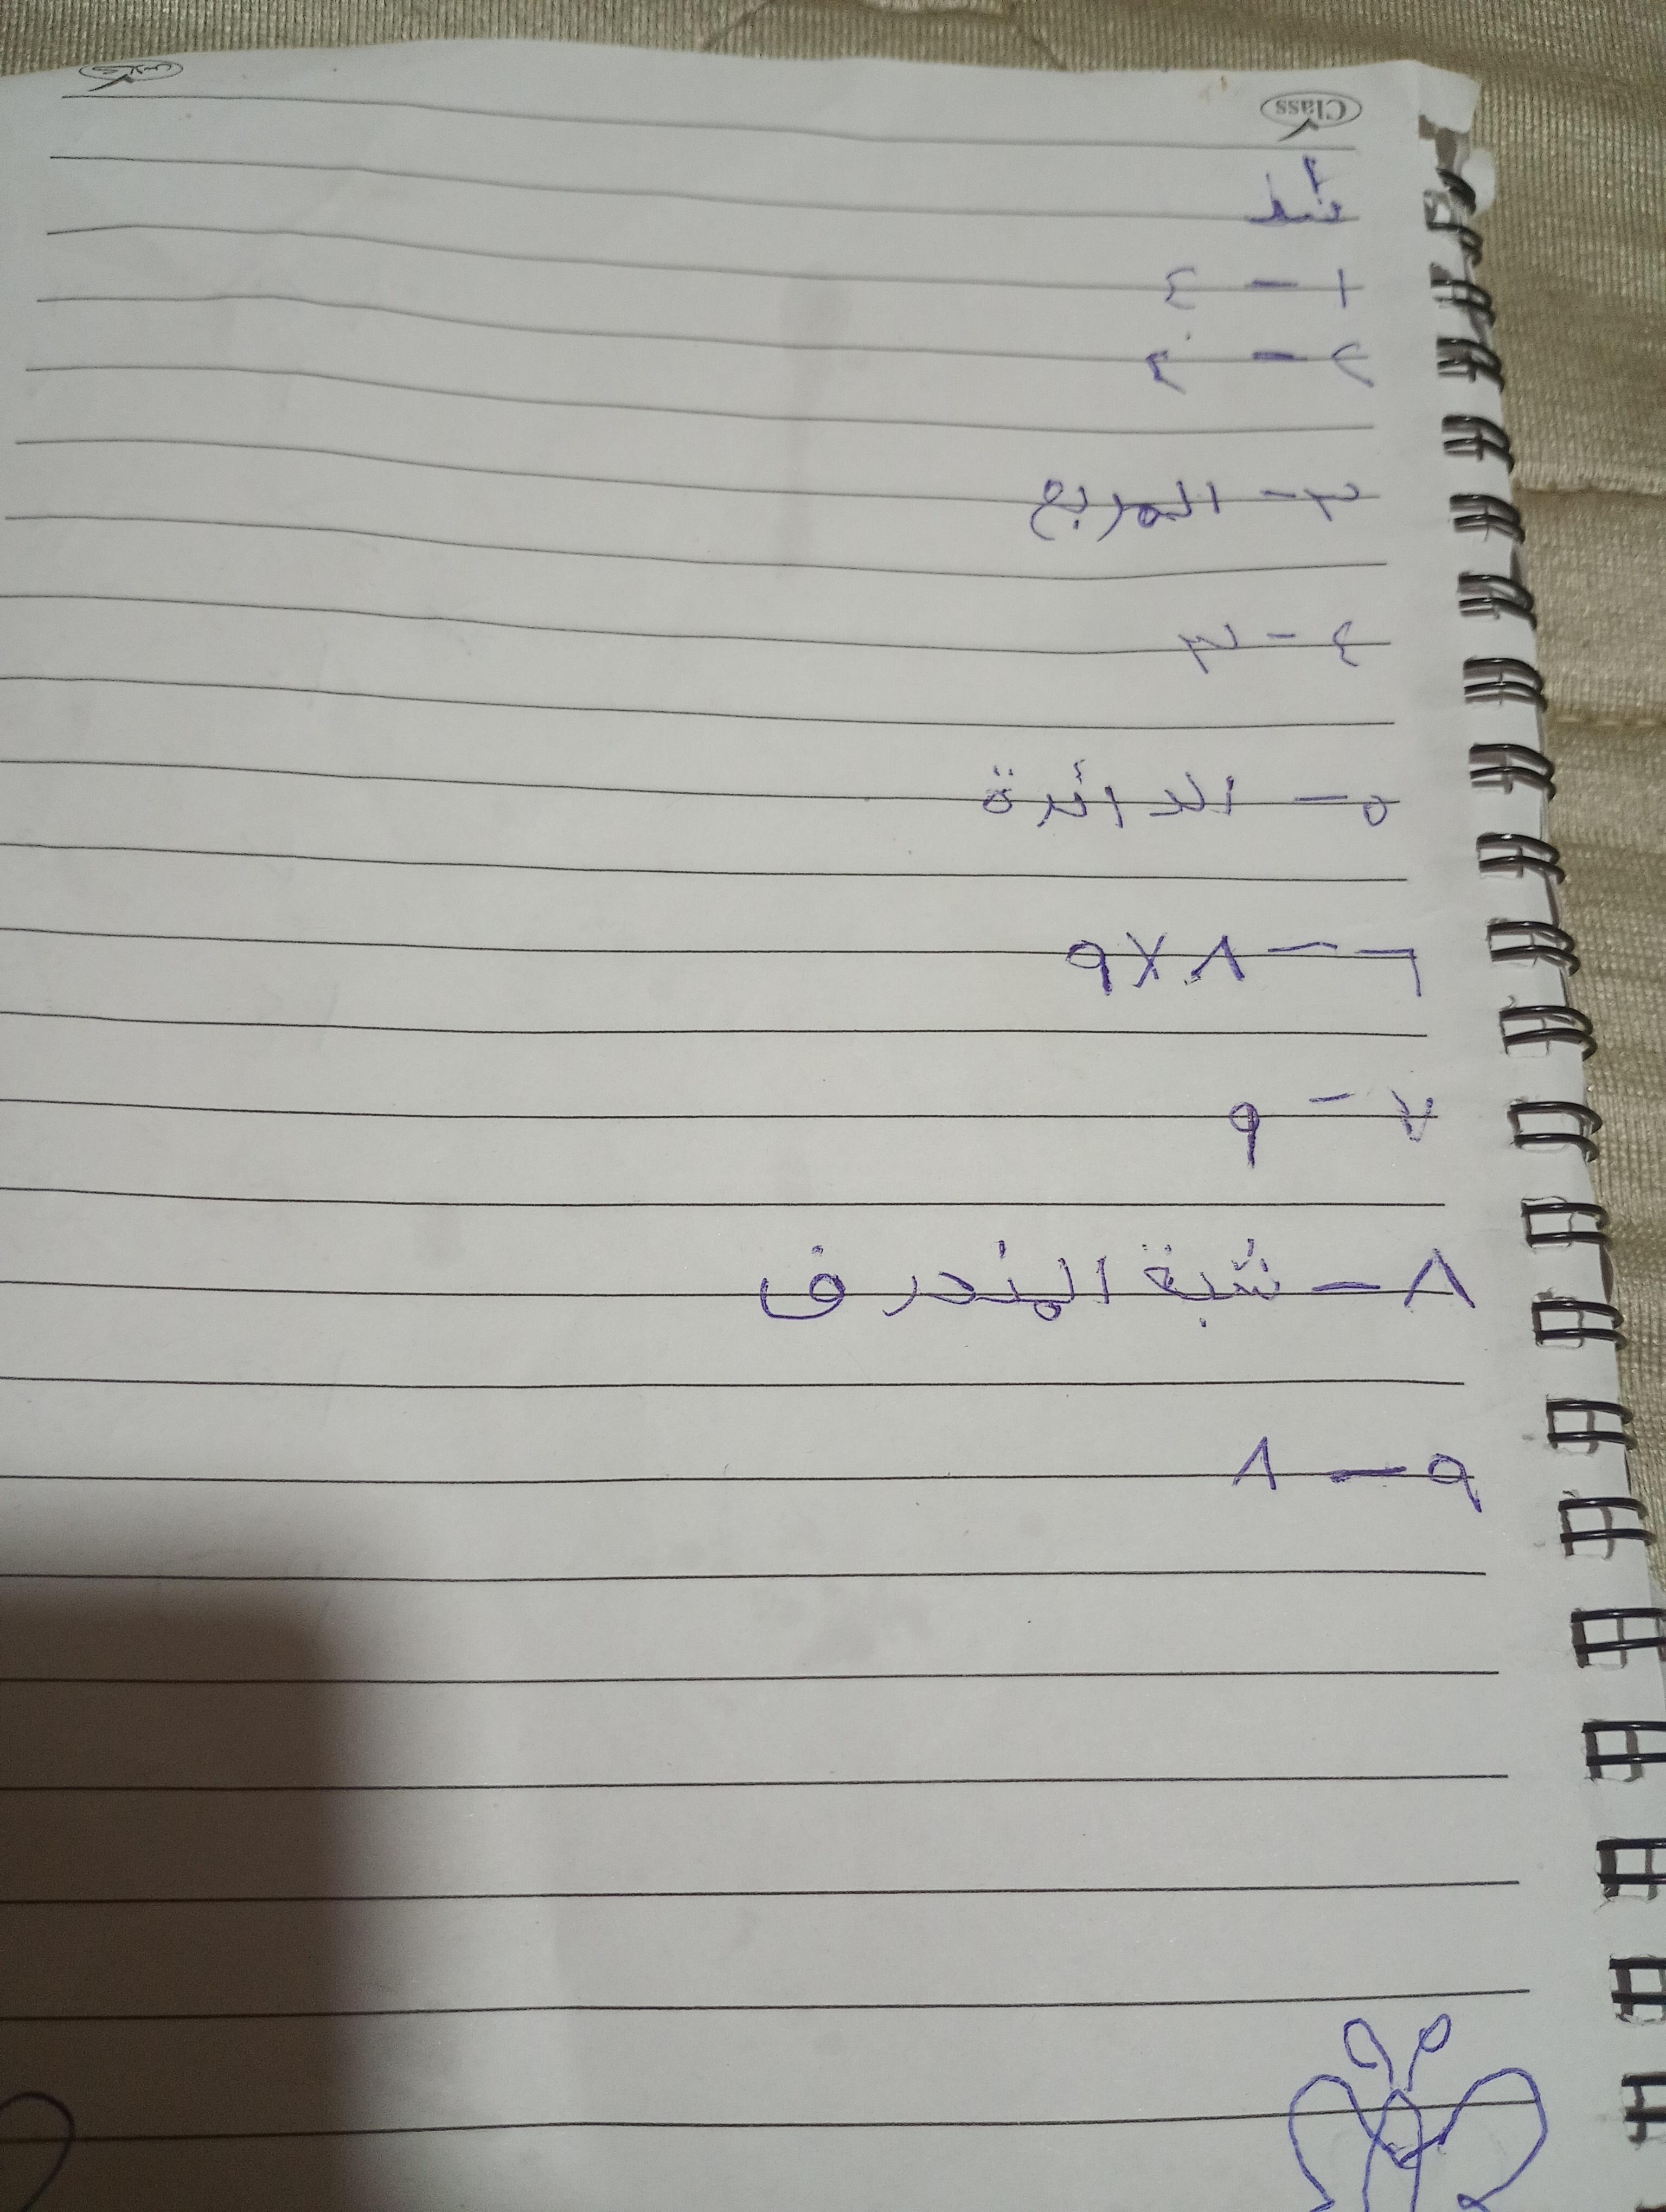 Class
١ - ٤
٢ - ٢
٣ - المربع
٤ - ٣
٥ - الدائرة
٦ - ٨ X ٩
٧ - ٩
٨ - شبة المنحرف
٩ - ٨